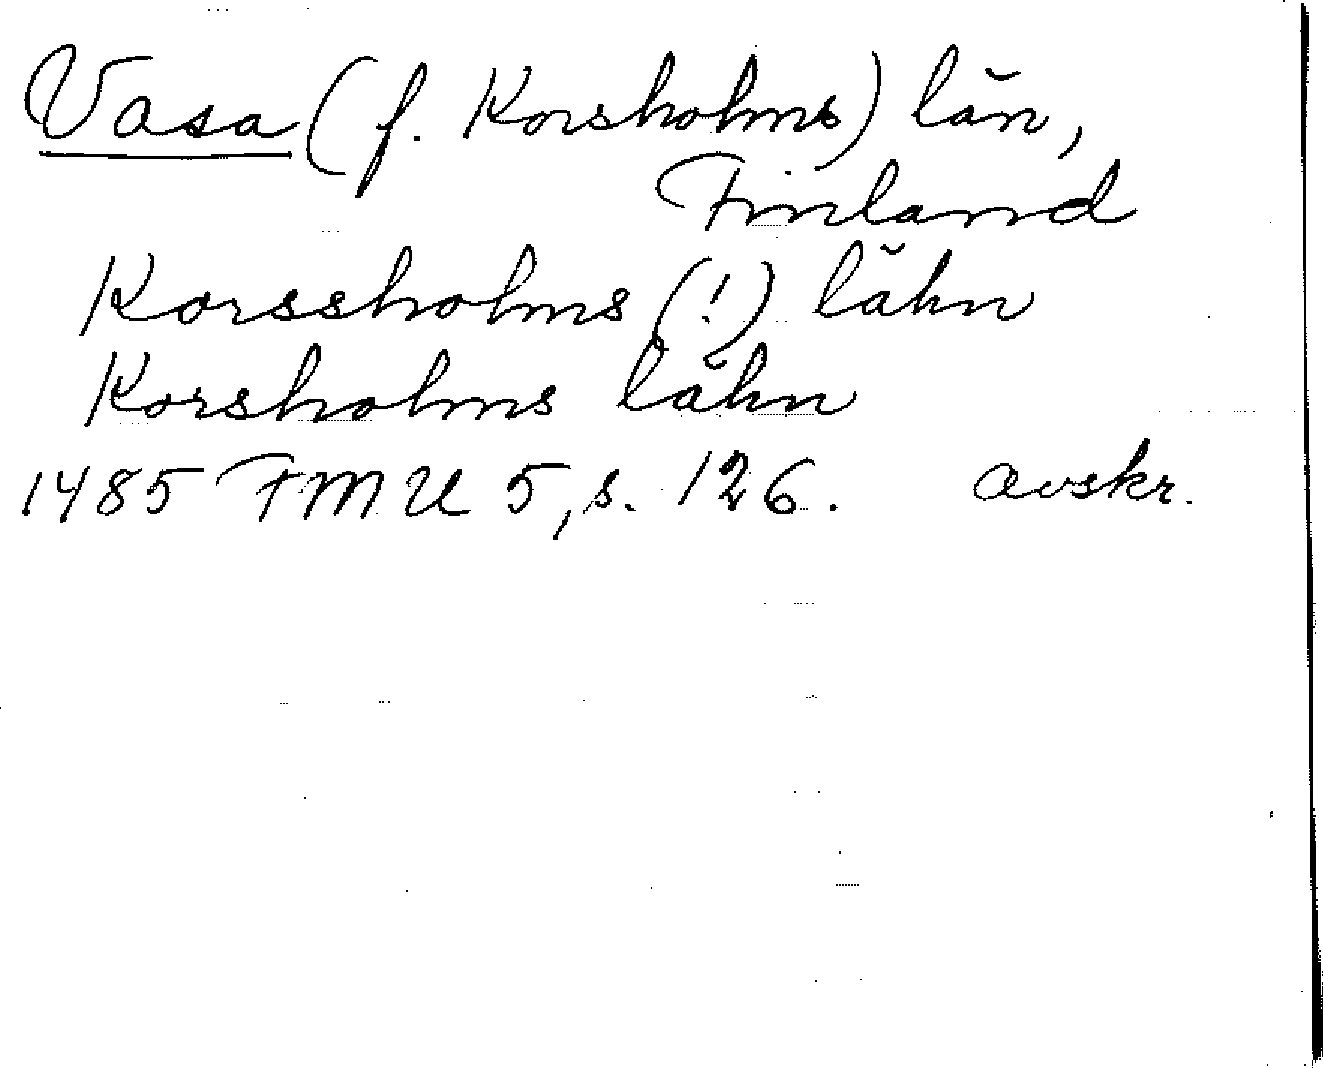 Vasa (f. Korsholms) län,
Finland
Korssholms (!) lähn
Korsholms lähn
1485 FMU 5, s. 126. avskr.